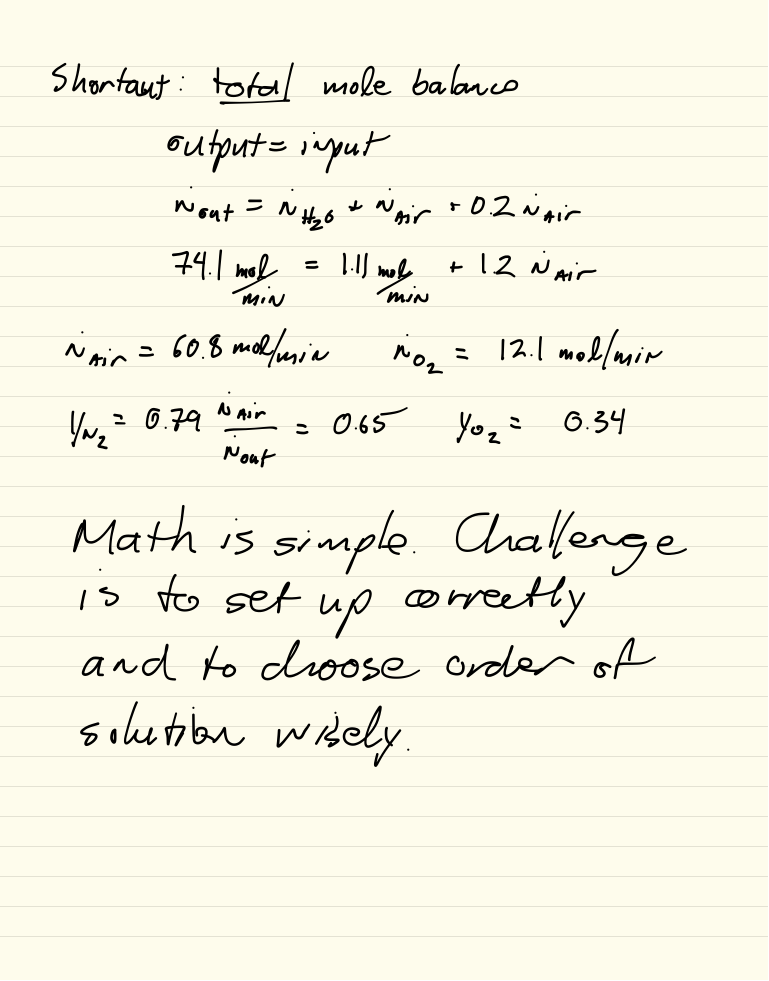 Shortcut: total mole balance
output = input
ṅout = ṅH₂O + ṅAir + 0.2 ṅAir
74.1 mol/min = 1.11 mol/min + 1.2 ṅAir
ṅAir = 60.8 mol/min ṅO₂ = 12.1 mol/min
yN₂ = 0.79 ṅAir/ṅout = 0.65 yO₂ = 0.34
Math is simple. Challenge
is to set up correctly
and to choose order of
solution wisely.